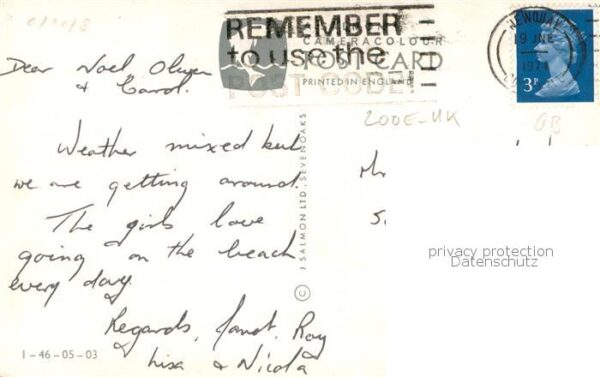 REMEMBER
to use the
POST CODE
CAMERACOLOUR
POST CARD
PRINTED IN ENGLAND
NEWQUAY
19 JNE
1974
3P
200E-UK
GB
Dear Noel
& Carol.
Weather mixed but
we are getting around
The girls love
going on the beach
every day
Regards, Janet, Roy
Lisa & Nicola
© J SALMON LTD., SEVENOAKS
privacy protection
Datenschutz
1-46-05-03